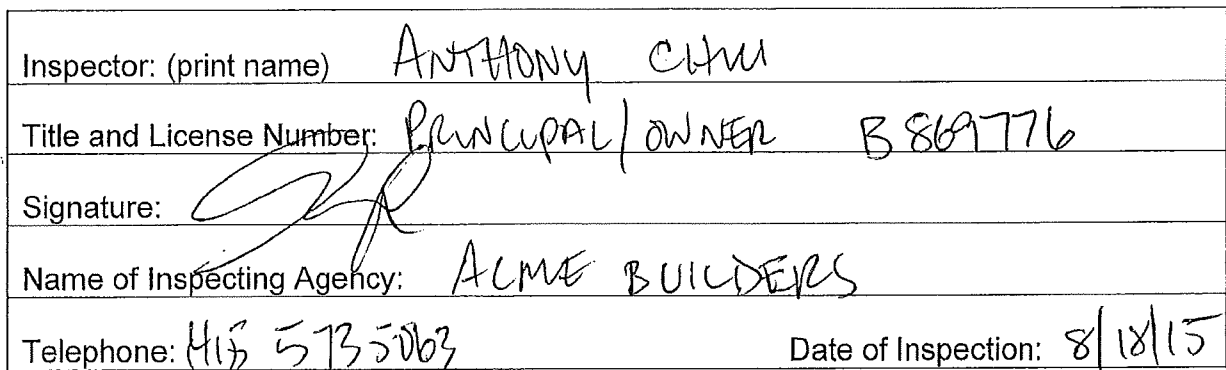 Inspector: (print name) ANTHONY CHIU
Title and License Number: PRINCIPAL/OWNER B 869776
Signature:
Name of Inspecting Agency: ACME BUILDERS
Telephone: 415 573 5063 Date of Inspection: 8/18/15